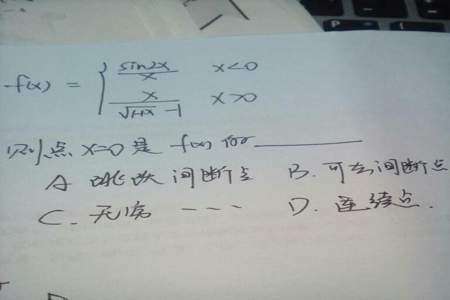 f(x) = { sin2x/x x<0
x/(√(1+x) -1) x>0
则点 x=0 是 f(x) 的______
A 跳跃间断点 B. 可去间断点
C. 无穷 - - - D. 连续点.